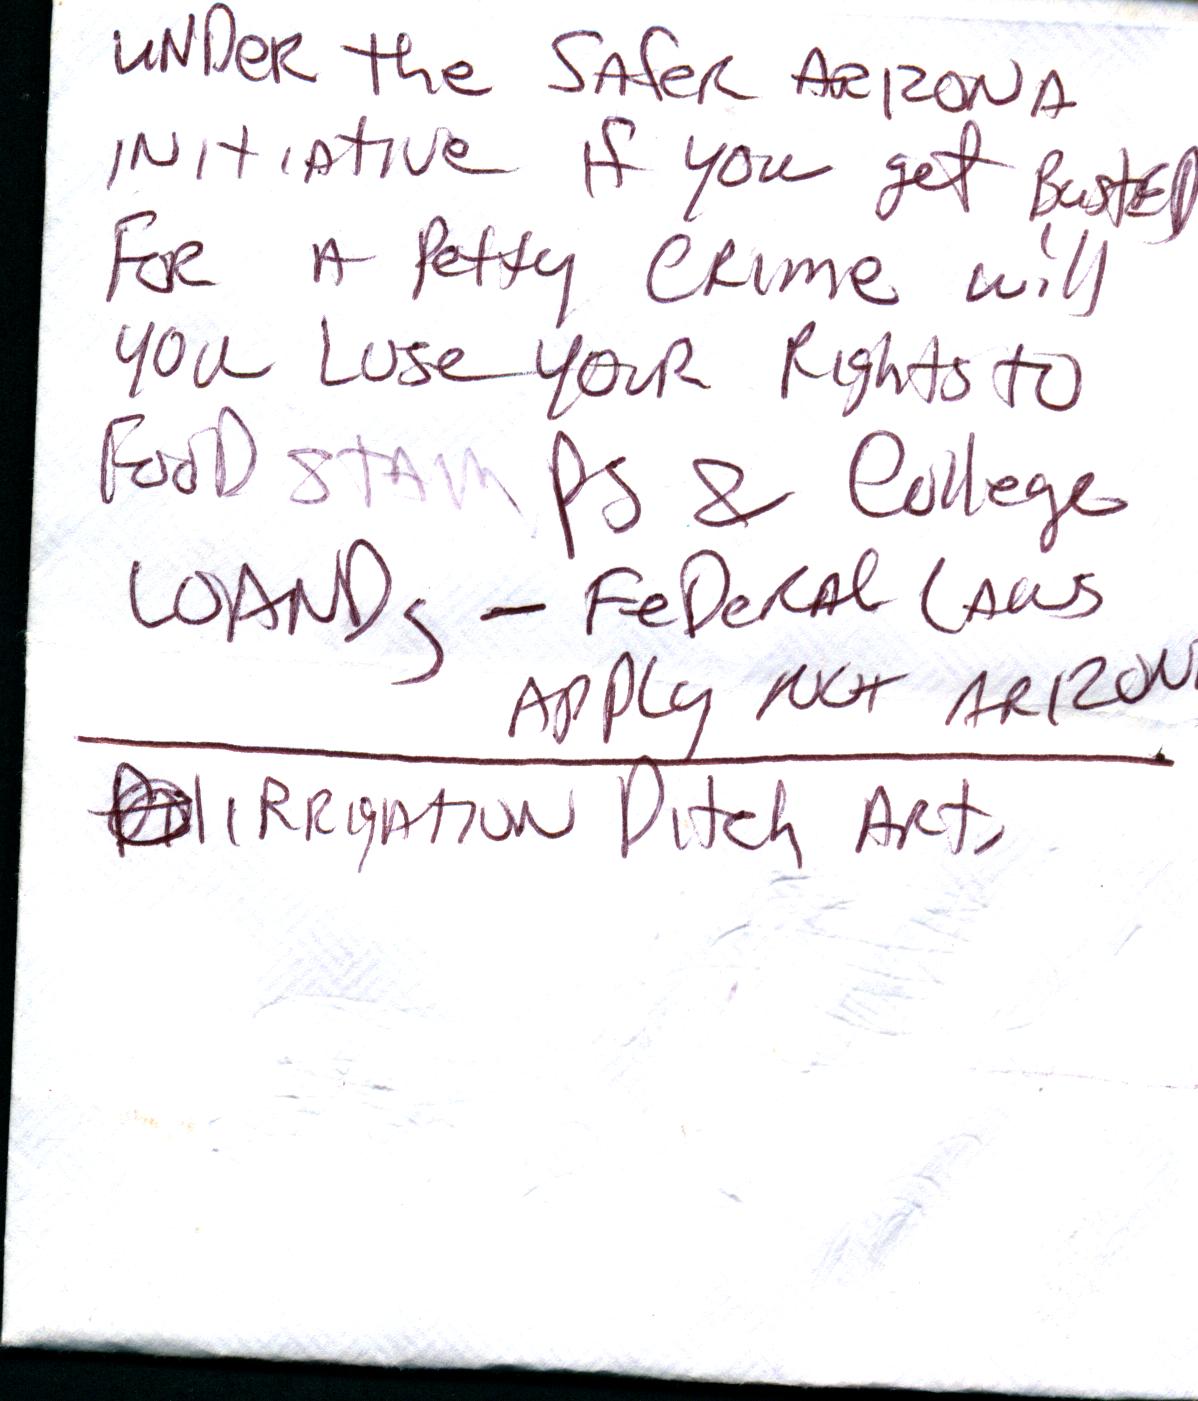 UNDER the SAfeR ARIZONA
INITIATIVE If you get BustED
FOR A Petty CRIME will
you Lose youR Rights to
FooD STAM PS & College
LOANDs - FeDeRAL LAWS
APPLy NOT ARIZON
IRRIGATION Ditch ARt,